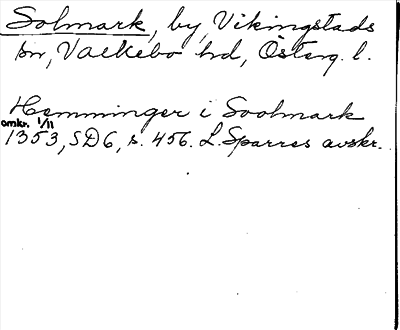 Solmark, by, Vikingstads
sn, Valkebo hd, Österg. l.
Hemminger i Soolmark
omkr. 1/11
1353, SD6, s. 456. L. Sparres avskr.